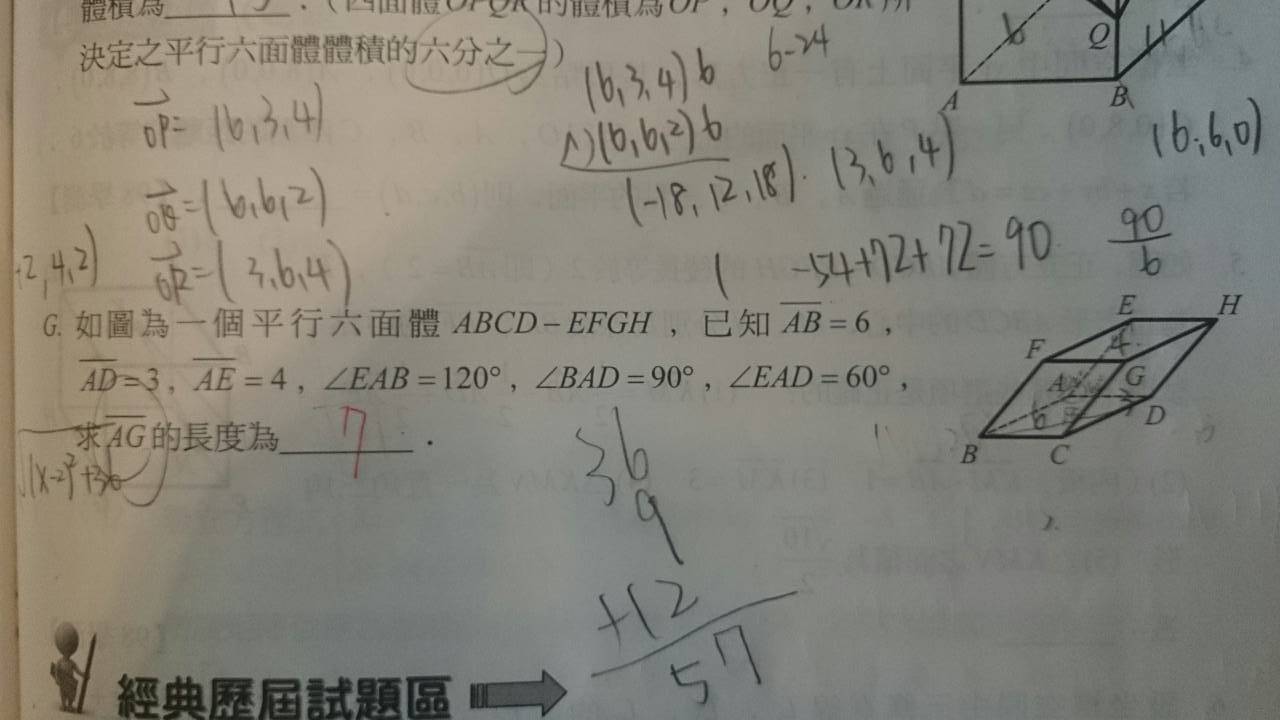 體積為 15 .（四面體OPQR的體積為OP，OQ，OR所
決定之平行六面體體積的六分之一）
6-24
Q
A
B
OP=(6,3,4)
OQ=(6,6,2)
OR=(3,6,4)
(6,3,4)6
×)(6,6,2)6
(-18,12,18)·(3,6,4)
(6,6,0)
-54+72+72=90
90
6
2,4,2)
G. 如圖為一個平行六面體ABCD-EFGH，已知AB=6，
AD=3，AE=4，∠EAB=120°，∠BAD=90°，∠EAD=60°，
求AG的長度為 7 .
(x-2)²+36
E
H
F
4
A
G
6
D
B
C
36
9
+12
57
經典歷屆試題區